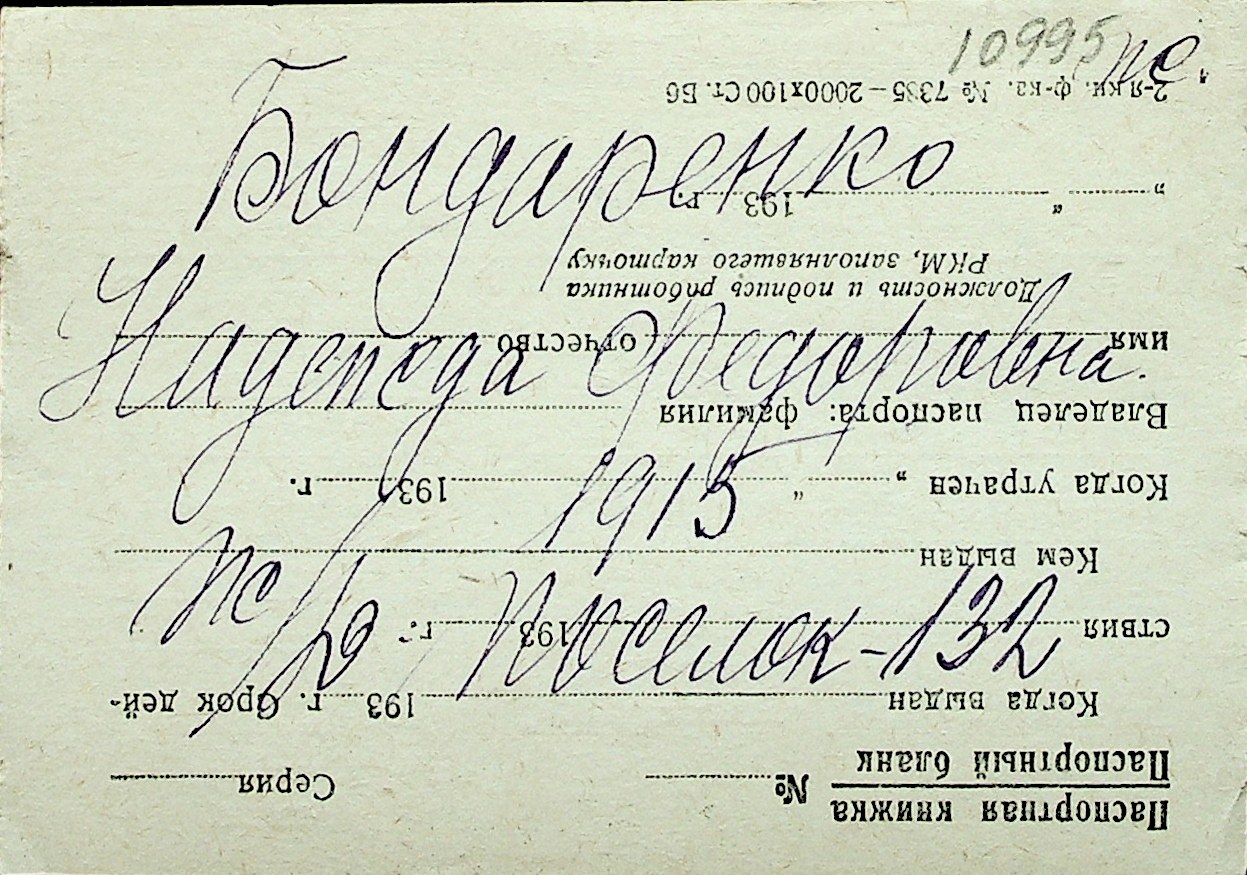 10995 пс
Бондаренко
Надежда Федоровна.
1915
ж/д Поселок - 132
Паспортная книжка
Паспортный бланк
№ Серия
Когда выдан 193 г. Срок дей-
ствия 193 г.
Кем выдан
Когда утрачен „ “ 193 г.
Владелец паспорта: фамилия
имя отчество
Должность и подпись работника
РКМ, заполнявшего карточку
„ “ 193 г.
2-я кн. ф-ка. № 7335 – 2000х100 Ст. Б6